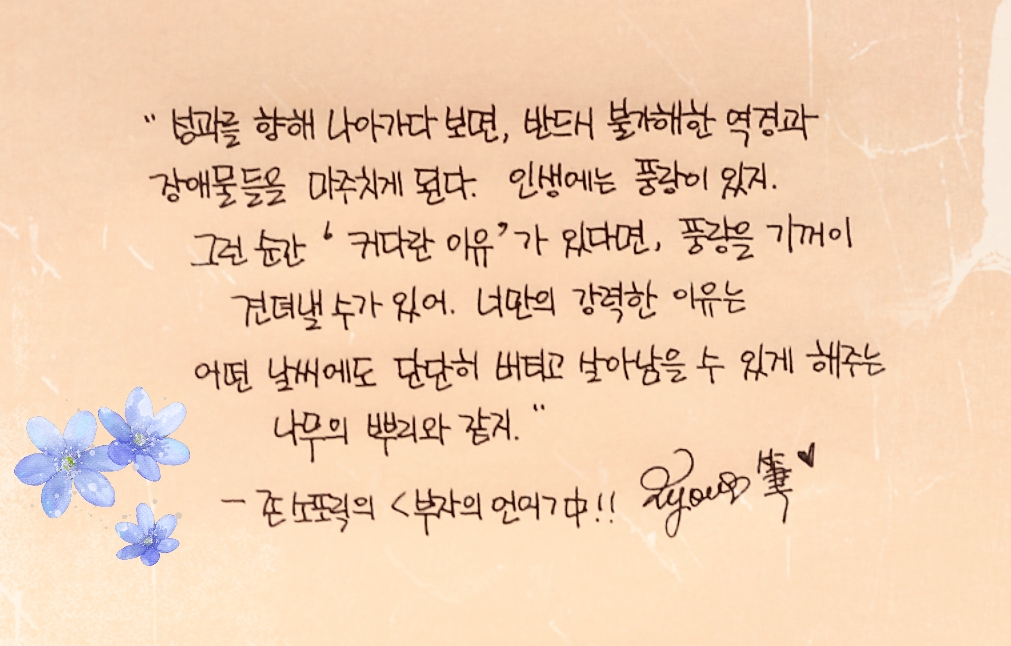 " 성과를 향해 나아가다 보면, 반드시 불가해한 역경과
장애물들을 마주치게 된다. 인생에는 풍랑이 있지.
그런 순간 ' 커다란 이유' 가 있다면, 풍랑을 기꺼이
견뎌낼 수가 있어. 너만의 강력한 이유는
어떤 날씨에도 단단히 버티고 살아남을 수 있게 해주는
나무의 뿌리와 같지. "
- 존 소포릭의 <부자의 언어> 中!! 筆 ♥